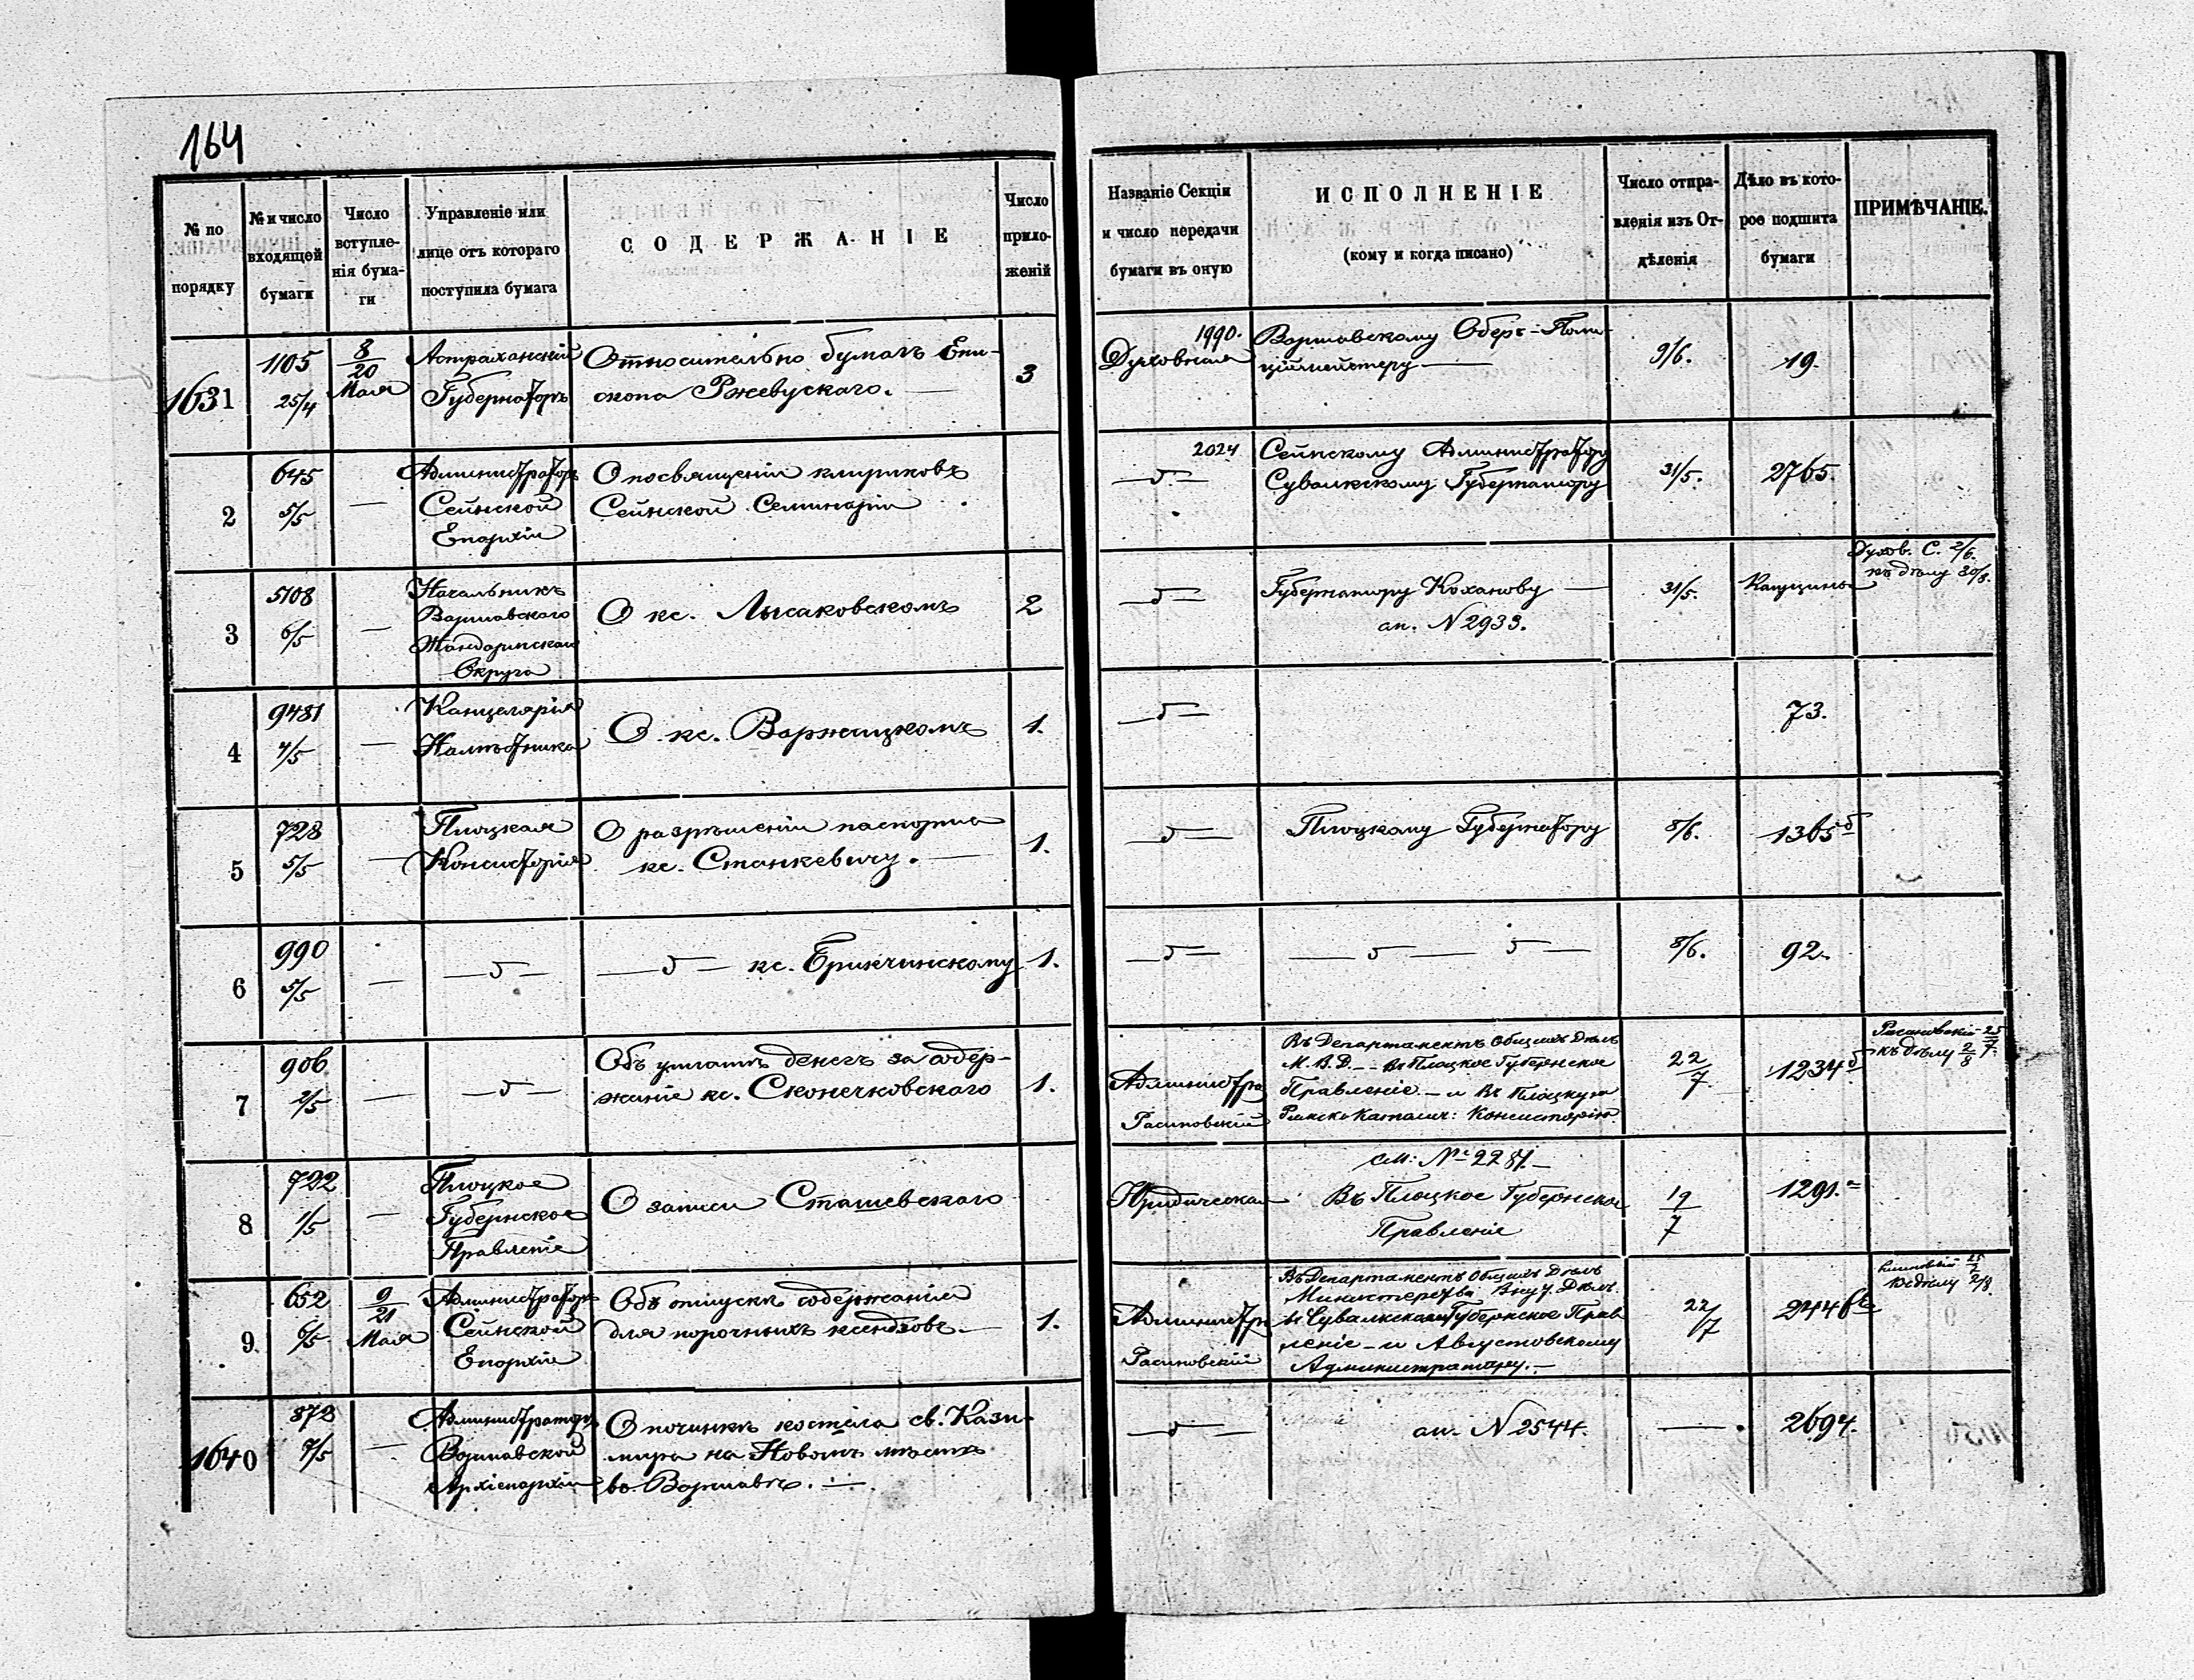 164
№ по порядку
№ и число входящей бумаги
Число вступле-нія бума-ги
Управленіе или лице отъ котораго поступила бумага
СОДЕРЖАНІЕ
Число прило-женій
Названіе Секціи и число передачи бумаги въ оную
ИСПОЛНЕНІЕ
(кому и когда писано)
Число отпра-вленія изъ От-дѣленія
Дѣло въ кото-рое подшита бумаги
ПРИМѢЧАНІЕ.
1631
1105
25/4
8/20 Мая
Астраханскій
Губернаторъ
Относительно бумагъ Епи-
скопа Ржевускаго.
3
1990.
Духовная
Варшавскому Оберъ-Поли-
ціймейстеру —
9/6.
19.
2
645
5/5
—
Администраторъ
Сейнской
Епархіи
О посвященіи клириковъ
Сейнской Семинаріи
2024
Сейнскому Администратору
Сувалкскому Губернатору
31/5.
2765.
3
5108
6/5
—
Начальникъ
Варшавскаго
Жандармскаго
Округа
О кс. Лысаковскомъ
2
Губернатору Коханову —
ап. N 2933.
31/5.
Капуцины
Духов. С. 2/6.
къ дѣлу 30/8.
4
9481
4/5
—
Канцелярія
Намѣстника
О кс. Варжицкомъ
1.
73.
5
728
5/5
—
Плоцкая
Консисторія
О разрѣшеніи паспорта
кс. Станкевичу. —
1.
Плоцкому Губернатору
8/6.
1365 б
6
990
5/5
—
кс. Брикчинскому
1.
8/6.
92.
7
906
2/5
—
Объ уплатѣ денегъ за содер-
жаніе кс. Сконечковскаго
1.
Администра
Расиновскій
Въ Департаментъ Общихъ Дѣлъ
М. В. Д. — въ Плоцкое Губернское
Правленіе — и въ Плоцкую
Римско Катол: Консисторію.
22/7
1234 б
къ дѣлу 2/8
8
722
1/5
—
Плоцкое
Губернское
Правленіе
О записи Сташевскаго
Юридическая
см: № 2281. —
Въ Плоцкое Губернское
Правленіе
19/7
1291.
9.
652
6/5
9/21 Мая
Администраторъ
Сейнской
Епархіи
Объ отпускѣ содержанія
для порочныхъ ксендзовъ. —
1.
Админист
Расиновскій
Въ Департаментъ Общихъ Дѣлъ
Министерства Внут. Дѣлъ.
въ Сувалкское Губернское Прав
леніе — и Августовскому
Администратору. —
22/7
244
къ дѣлу 2/8.
1640
872
7/5
—
Администраторъ
Варшавской
Архіепархіи
О починкѣ костела св. Кази-
мира на Новомъ мѣстѣ
въ Варшавѣ.
ап. N 2544.
—
2694.